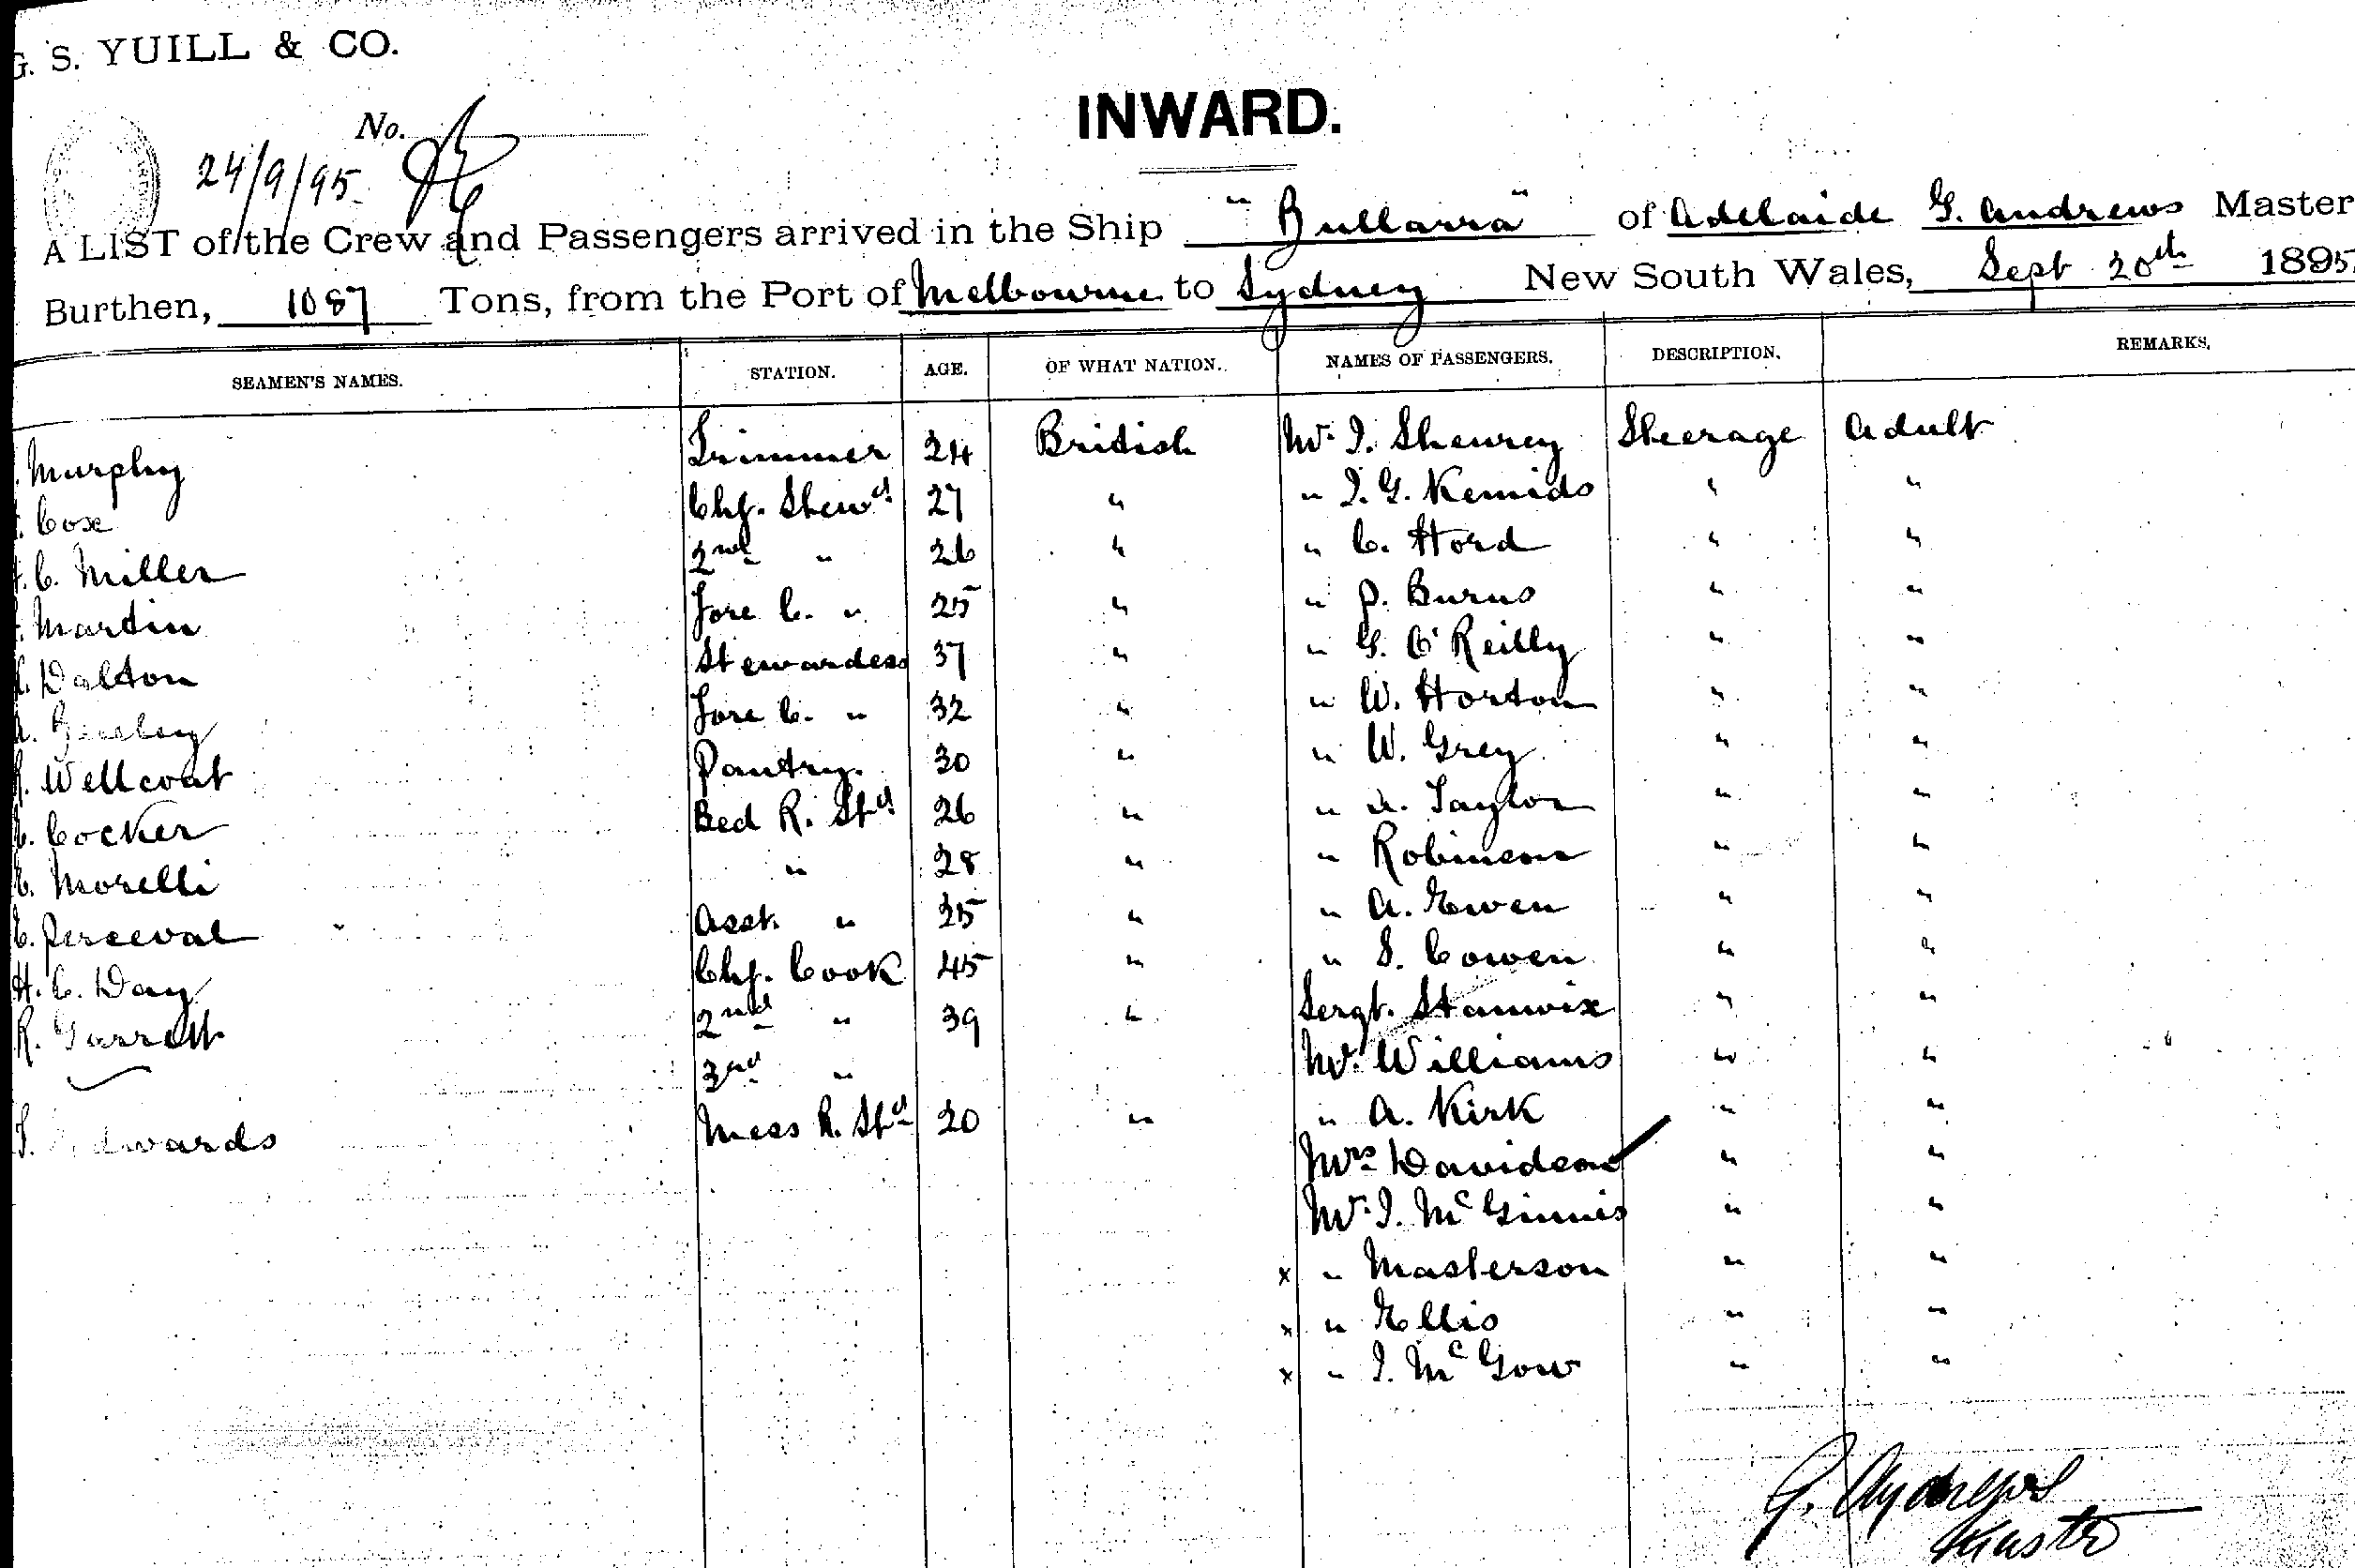 G. S. YUILL & CO.
INWARD.
No.
24/9/95
A LIST of the Crew and Passengers arrived in the Ship "Bullarra" of Adelaide G. Andrews Master
Burthen, 1087 Tons, from the Port of Melbourne to Sydney New South Wales, Sept 20th 1895
SEAMEN'S NAMES. STATION. AGE. OF WHAT NATION. NAMES OF PASSENGERS. DESCRIPTION. REMARKS.
Murphy Trimmer 24 British Mr. Steerage Adult
Cox Chf. Stewd 27 " " J. G. " "
C. Miller 2nd " 26 " " C. Hord " "
Martin Fore C. " 25 " " P. Burns " "
Dalton Stewardess 37 " " G. O'Reilly " "
Fore C. " 32 " " W. Horton " "
Wellcoat Pantry. 30 " " W. Grey " "
Cocker Bed R. Std 26 " " A. Taylor " "
E. Morelli " 28 " " Robinson " "
E. Perceval Asst. " 25 " " A. Ewen " "
H. C. Day Chf. Cook 45 " " S. Cowen " "
R. Garrett 2nd " 39 " Sergt. Stanwix " "
3rd " Mr. Williams " "
Mess R. Std 20 " " A. Kirk " "
Mrs Davidson " "
Mr. J. McGinnis " "
x " Masterson " "
x " Ellis " "
x " J. McGow " "
G. Andrews
Master